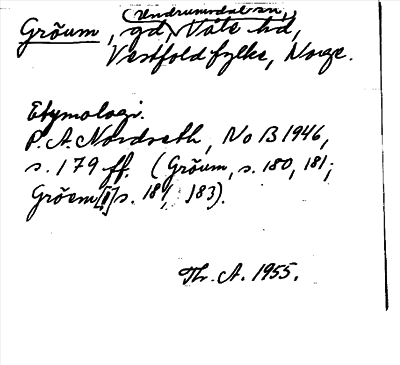 (Undrumsdal sn,)
Grõum, gd, Våle hd,
Vestfold fylke, Norge.
Etymologi.
P. A. Nordseth, NoB 1946,
s. 179 ff. (Grõum, s. 180, 181;
Grõem [I] s. 181, 183).
Thr. A. 1955.